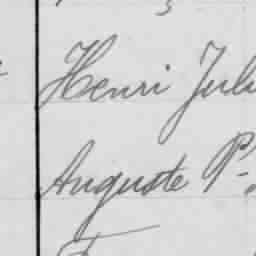 Henri Jul
Auguste P-